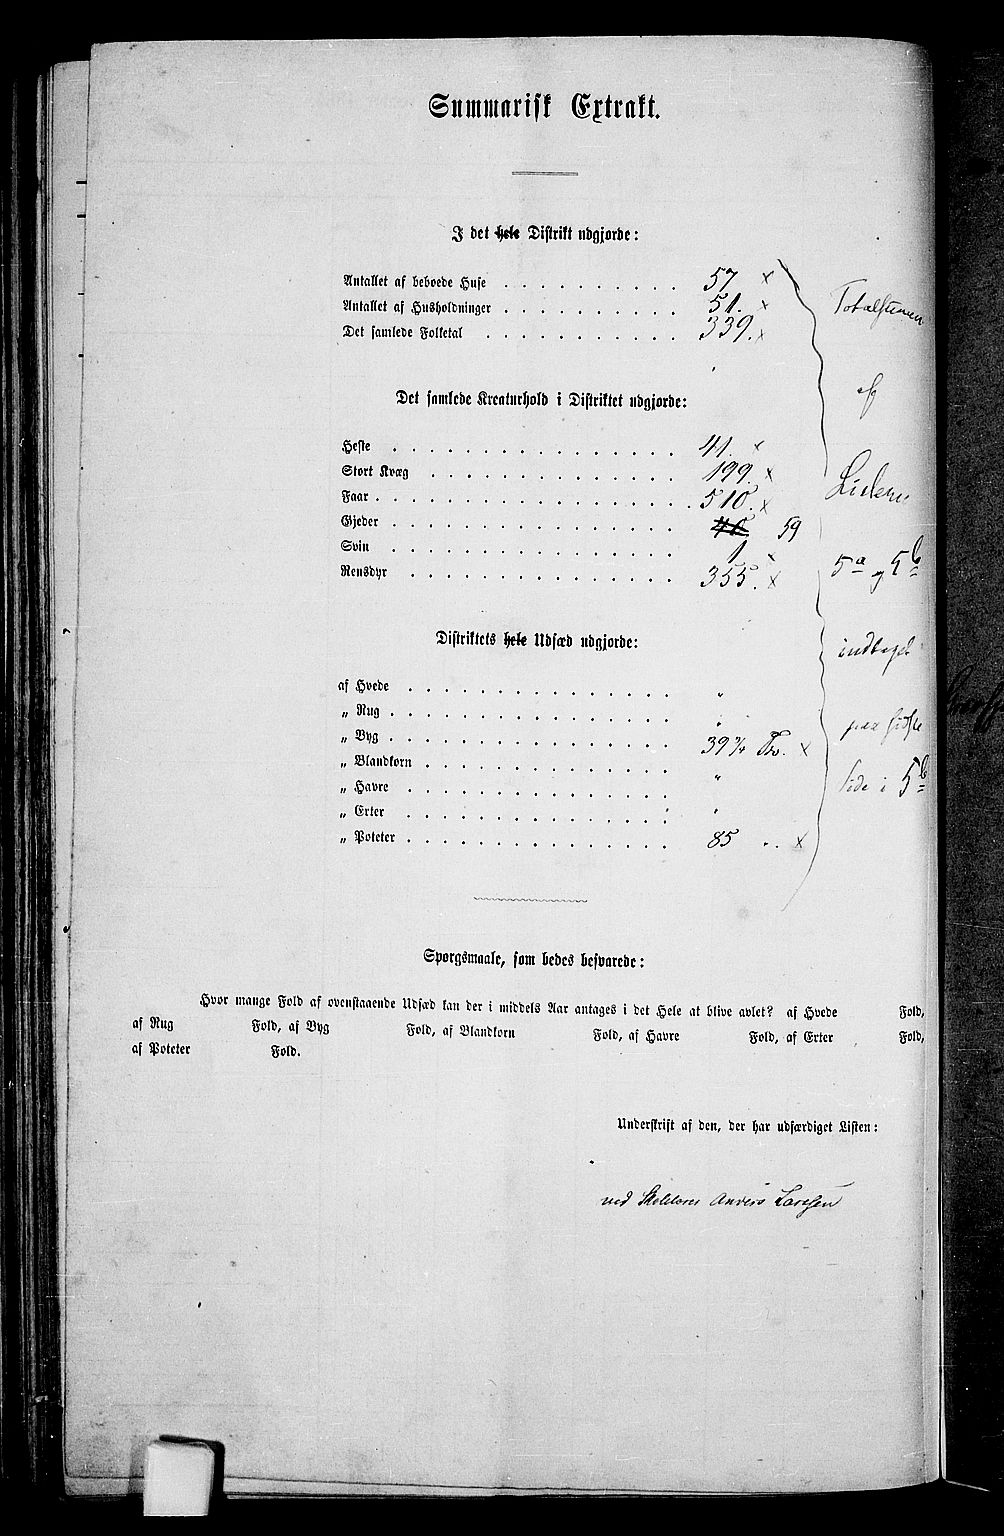 Summarisk Extrakt.
I det hele Distrikt udgjorde:
Antallet af beboede Huse . . . . . . . . . . 57 x
Antallet af Husholdninger . . . . . . . . . . 51. x
Det samlede Folketal . . . . . . . . . . . 339. x
Totalsummen
af
Det samlede Kreaturhold i Distriktet udgjorde:
Heste . . . . . . . . . . . . . . . . 41. x
Stort Kvæg . . . . . . . . . . . . . . 199. x
Faar . . . . . . . . . . . . . . . . . 510. x
Gjeder . . . . . . . . . . . . . . . . 59
Svin . . . . . . . . . . . . . . . . 1 x
Rensdyr . . . . . . . . . . . . . . . 355. x
5a og 5b
Distriktets hele Udsæd udgjorde:
af Hvede . . . . . . . . . . . . . . . "
" Rug . . . . . . . . . . . . . . . . "
" Byg . . . . . . . . . . . . . . . . 39 3/4 Tr. x
" Blandkorn . . . . . . . . . . . . . .
" Havre . . . . . . . . . . . . . . . "
" Erter . . . . . . . . . . . . . . . "
" Poteter . . . . . . . . . . . . . . . 85 " . x
paa sidste
Side i 5b
Spørgsmaale, som bedes besvarede:
Hvor mange Fold af ovenstaaende Udsæd kan der i middels Aar antages i det Hele at blive avlet? af Hvede Fold,
af Rug Fold, af Byg Fold, af Blandkorn Fold, af Havre Fold, af Erter Fold,
af Poteter Fold.
Underskrift af den, der har udfærdiget Listen:
ved Skolelærer Anders Larssen